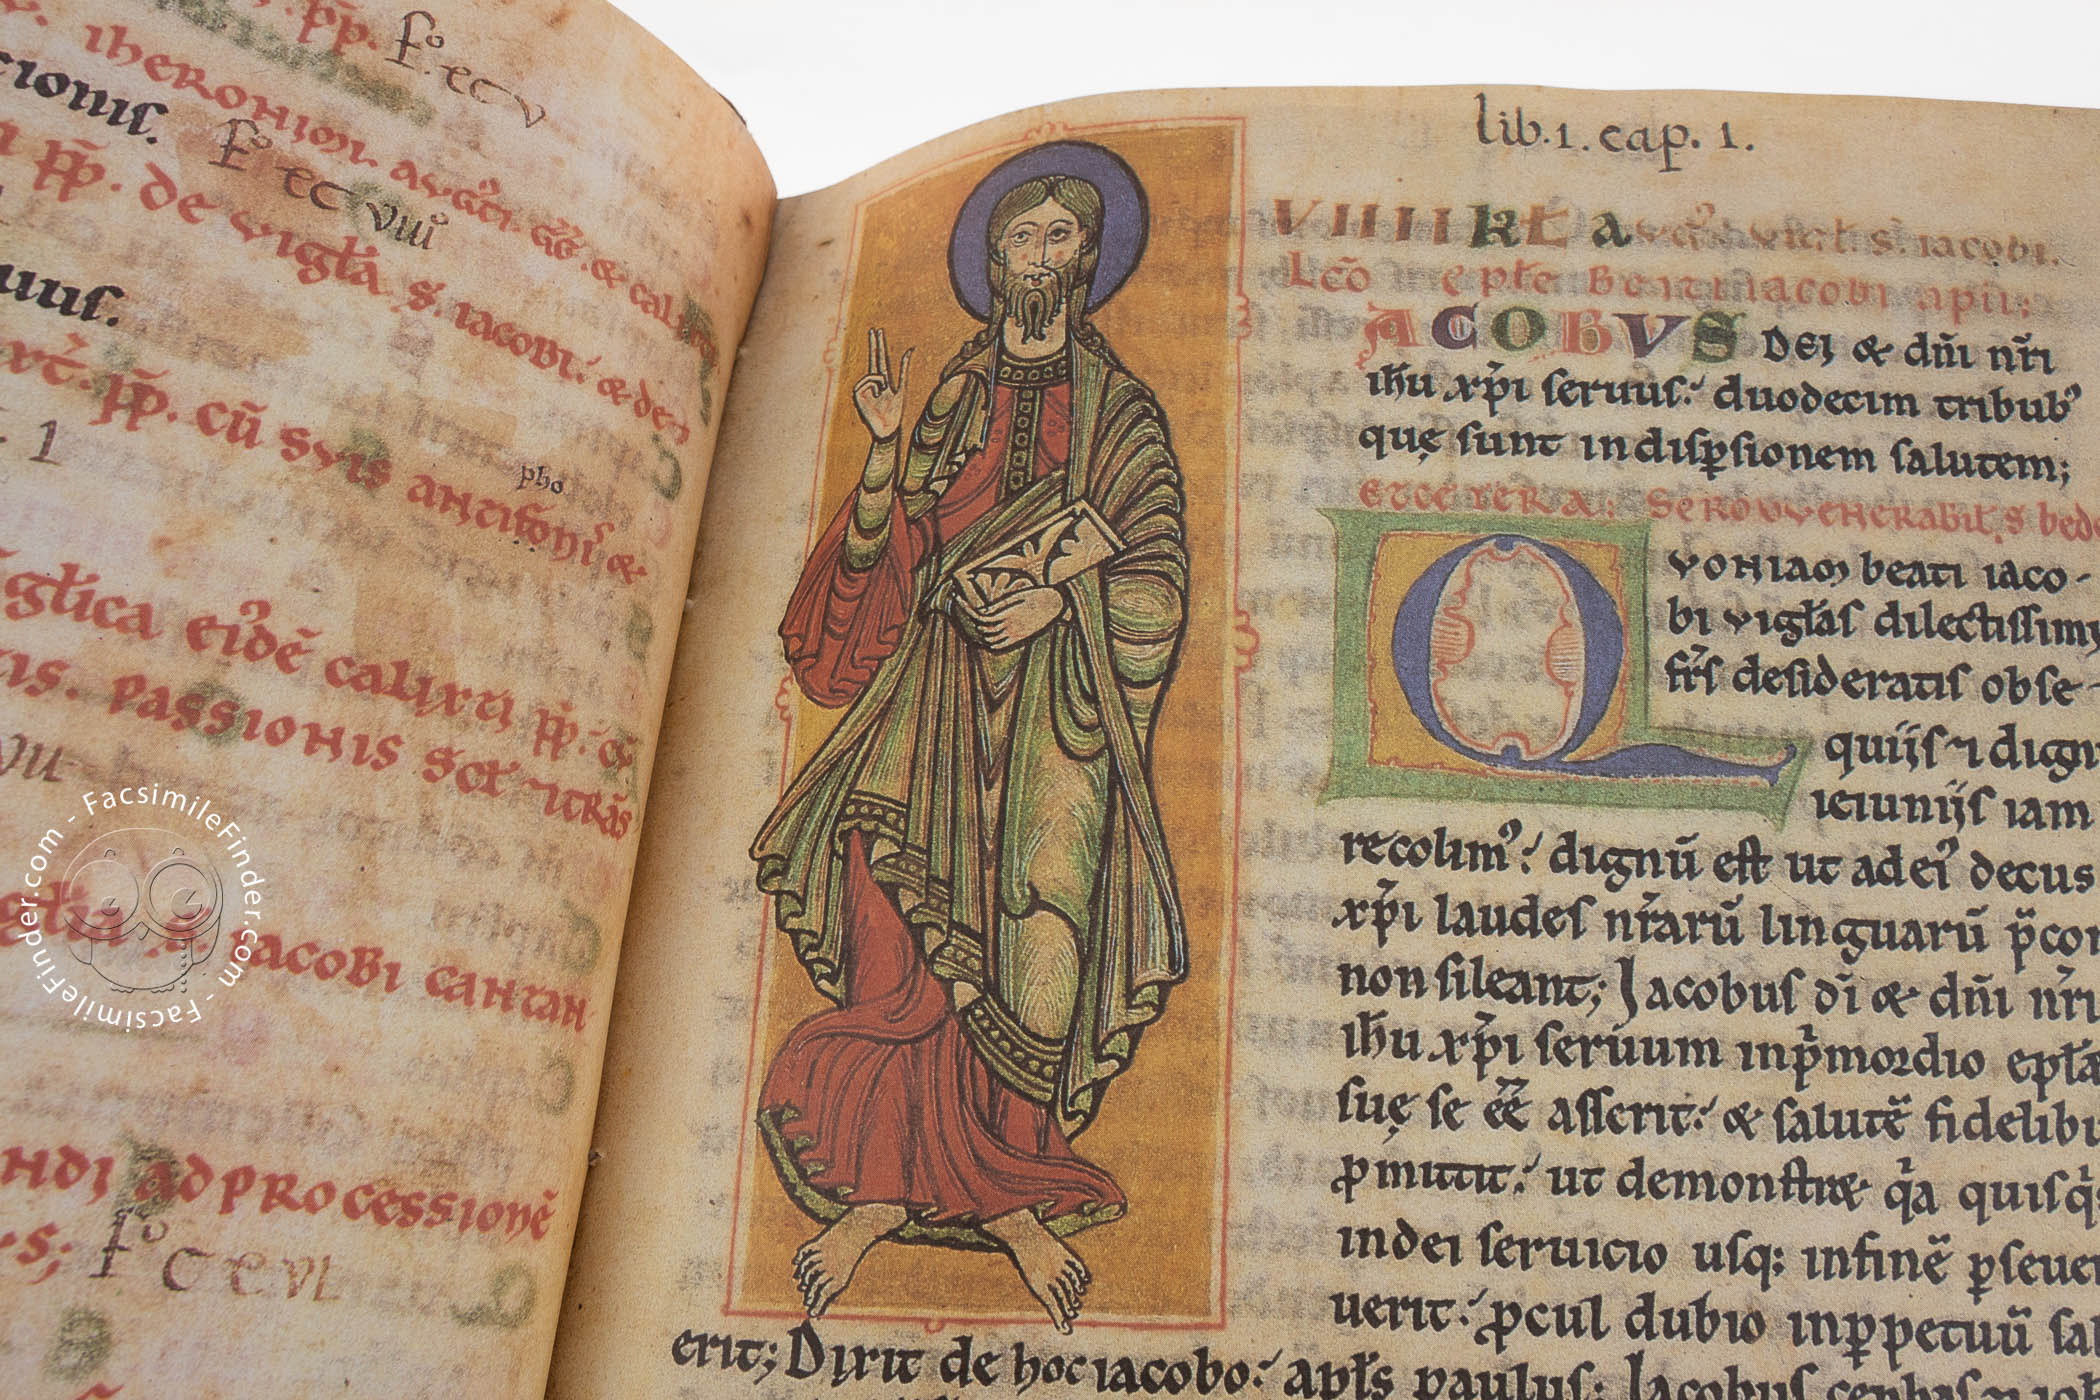 p̄p. fº. xcv
iheronimi. augᵒti. gᵍ̄. & calixti
cionis. fº xc viiiº
i p̄p. de vigła S. iacobi: & de
uus.
p̄p. cū suis antifoniˢ &
1
pho
gełica ei'dē calixti p̄p. &
tis. passionis scł
vii
s. iacobi cantan
ndi ad processionē
s; fº
lib. 1. cap. 1.
VIIII kł augᵒ. vigł. S. iacobi.
Lcō epłe Beati iacobi apłi:
IACOBVS DEI & dñi nr̄i
ih̄u xp̄i seruus: duodecim tribubꝰ
quę sunt in dispsionem salutem;
Et cetera: Sermo venerabil S bed
QVONIAM beati iaco-
bi vigłas dilectissimi
fr̄s desideratis obse-
quiis 7 dign
ieiuniis iam
recolimꝰ: dignū est ut ad eiꝰ decus
xp̄i laudes nr̄arū linguarū p̄con
non sileant; Jacobus dī & dñi nr̄i
ih̄u xp̄i seruum in p̄mordio epła
suę se eē̄ asserit: & salutē fidelibꝰ
pmittit: ut demonstret q̄a quisq̄
in dei seruicio usq; in finē pseue
uerit: pcul dubio in ppetuū sal
erit; Dixit de hoc iacobo: apłs paulus; Jacobus cephas
FacsimileFinder.com - FacsimileFinder.com -